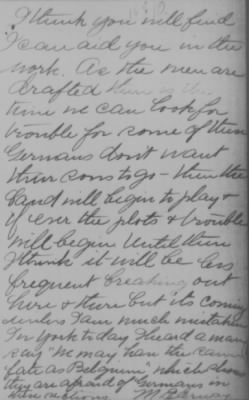 I think you will find
I can aid you in the
work. As the men are
drafted then is the
time we can look for
trouble for some of them
Germans dont want
their sons to go - then the
band will begin to play &
if ever the plots & trouble
will begin. Until then
I think it will be less
frequent breaking out
here & there but its coming
unless I am much mistaken
In York today I heard a man
say "We may have the same
fate as Belgium" which shows
they are afraid of Germans in
these sections.